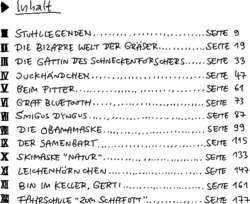 ▶ Inhalt
I STUHLLEGENDEN SEITE 9
II DIE BIZARRE WELT DER GRÄSER SEITE 19
III DIE GATTIN DES SCHNECKENFORSCHERS SEITE 33
IV JUCKHÄNDCHEN SEITE 47
V BEIM PITTER SEITE 61
VI GRAF BLUETOOTH SEITE 73
VII ŚMIGUS DYNGUS SEITE 87
VIII DIE OBAMAMASKE SEITE 99
IX DER SAMENBART SEITE 115
X SKIMASKE "NATUR" SEITE 133
XI LEICHENHÖRNCHEN SEITE 147
XII BIN IM KELLER, GERTI SEITE 161
XIII FAHRSCHULE "ZUM SCHAFOTT" SEITE 177